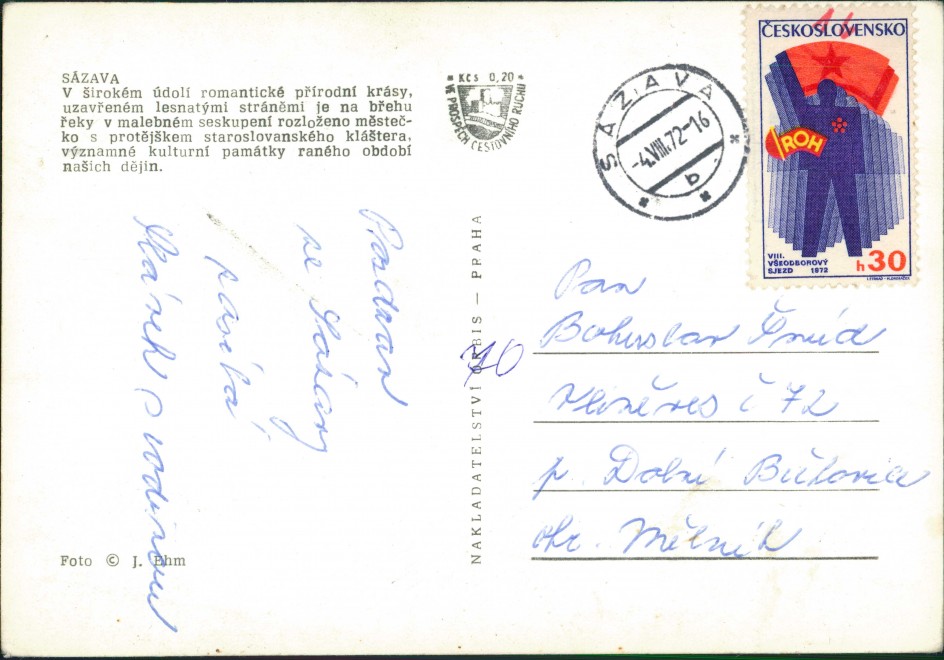 SÁZAVA
V širokém údolí romantické přírodní krásy,
uzavřeném lesnatými stráněmi je na břehu
řeky v malebném seskupení rozloženo městeč-
ko s protějškem staroslovanského kláštera,
významné kulturní památky raného období
našich dějin.
Pozdrav
ze Sázavy
zasílá
s rodinou
Foto © J. Ehm
KČS 0,20
VE PROSPĚCH CESTOVNÍHO RUCHU
NAKLADATELSTVÍ ORBIS — PRAHA
70
SÁZAVA
-4.VIII.72-16
b
ČESKOSLOVENSKO
ROH
VIII.
VŠEODBOROVÝ
SJEZD 1972
h 30
Pan
Bohuslav Šmíd
č 72
p. Dolní
okr. Mělník